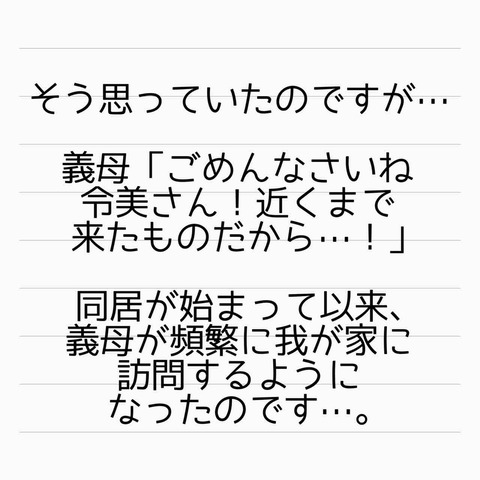 そう思っていたのですが…
義母「ごめんなさいね
令美さん！近くまで
来たものだから…！」
同居が始まって以来、
義母が頻繁に我が家に
訪問するように
なったのです…。